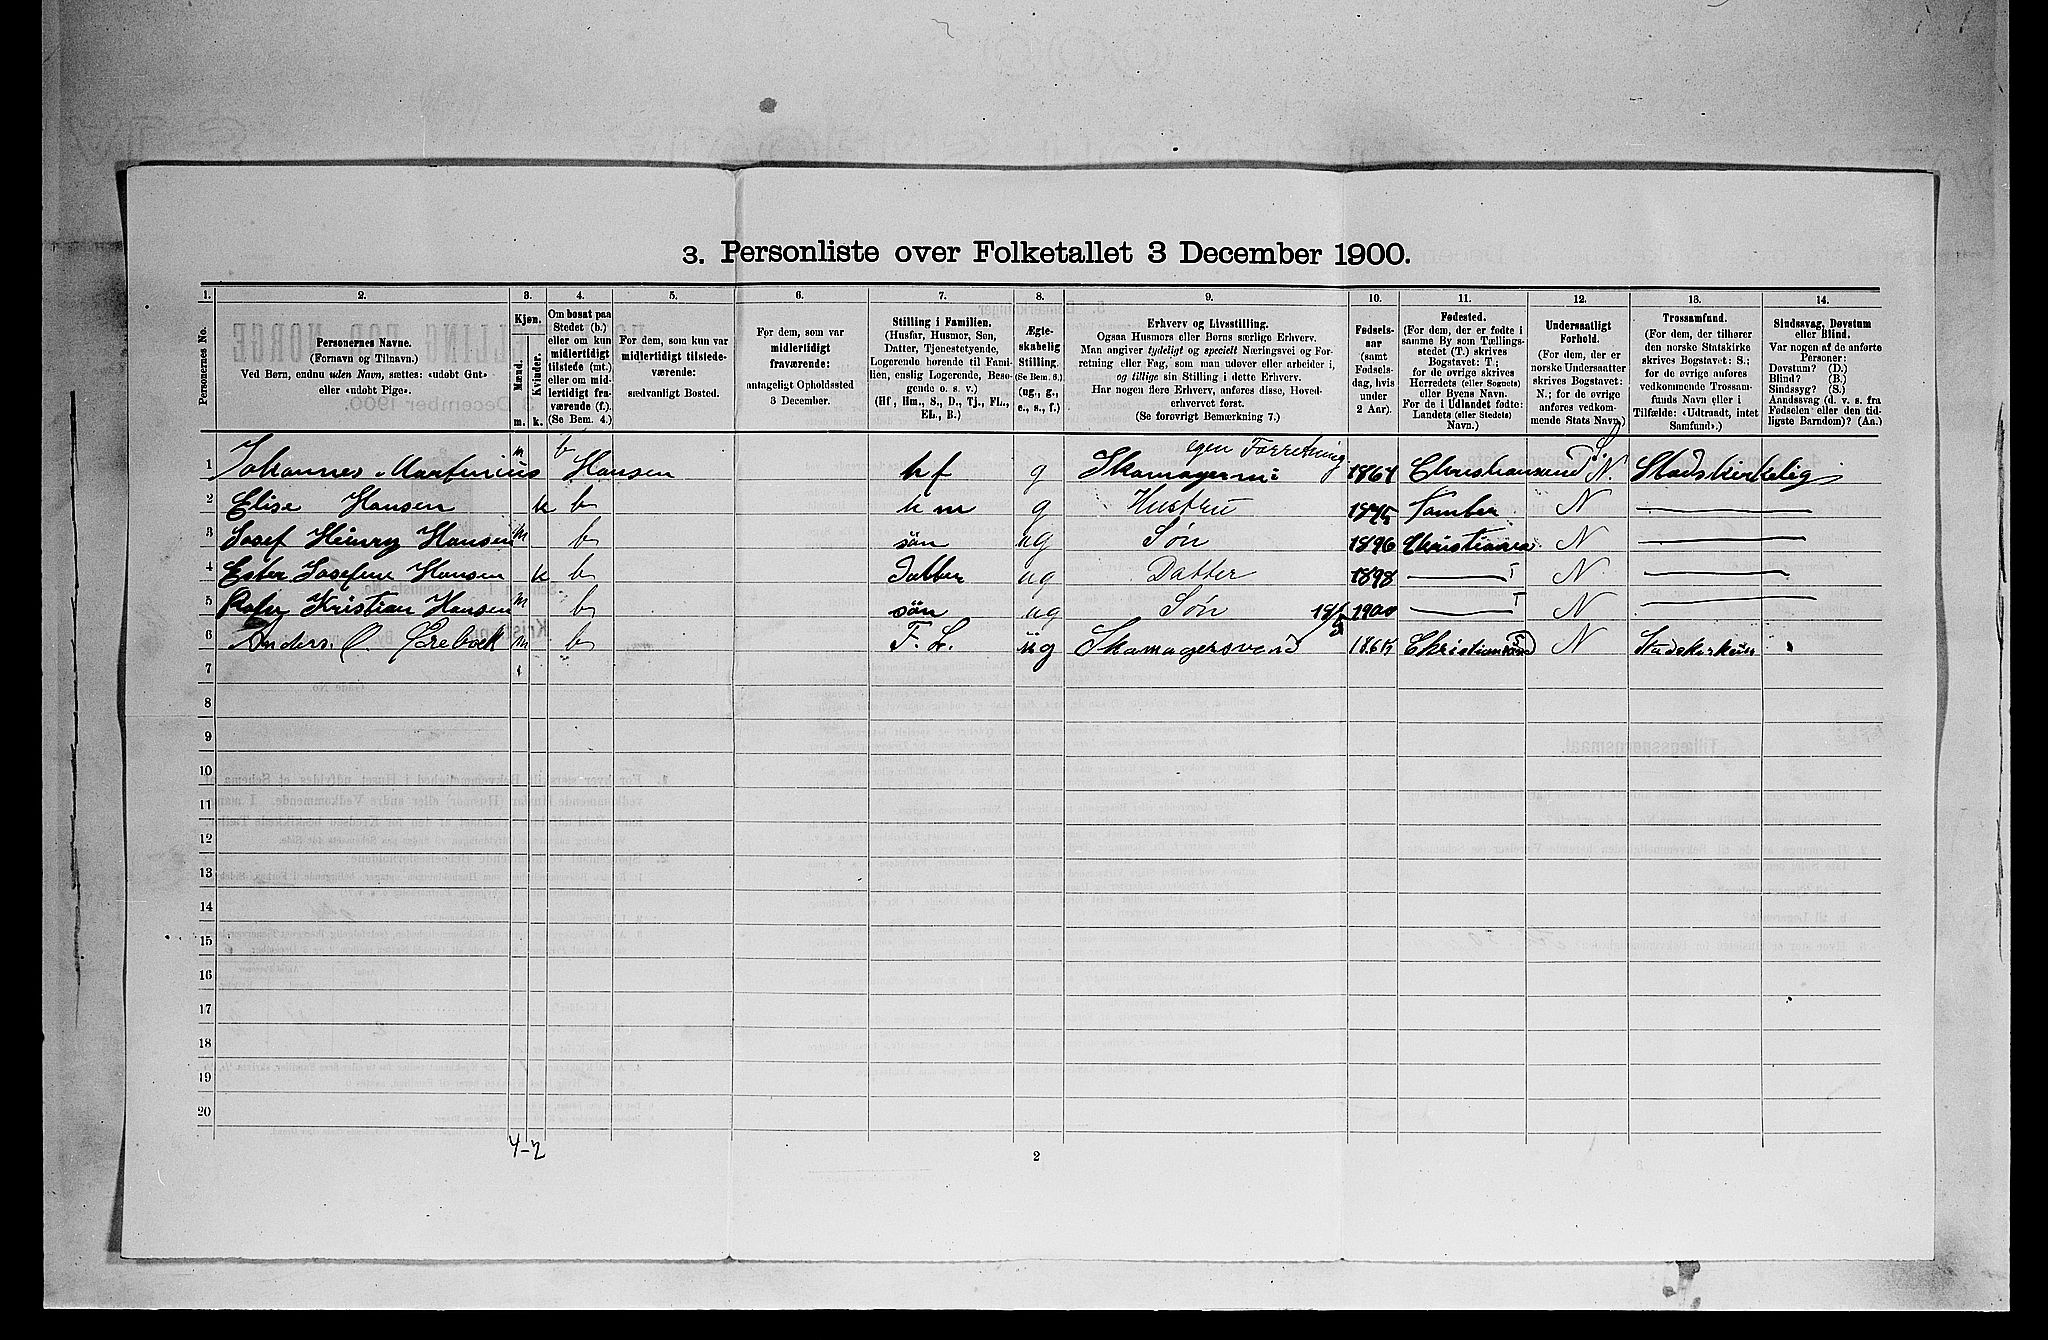 3. Personliste over Folketallet 3 December 1900.
1. 2. 3. 4. 5. 6. 7. 8. 9. 10. 11. 12. 13. 14.
Personernes No.
Personernes Navne.
(Fornavn og Tilnavn.)
Ved Børn, endnu uden Navn, sættes: «udøbt Gut»
eller «udøbt Pige».
Kjøn.
Mænd.
Kvinder.
m. k.
Om bosat paa
Stedet (b.)
eller om kun
midlertidigt
tilstede (mt.)
eller om mid-
lertidigt fra-
værende (f.).
(Se Bem. 4.)
For dem, som kun var
midlertidigt tilstede-
værende:
sædvanligt Bosted.
For dem, som var
midlertidigt
fraværende:
antageligt Opholdssted
3 December.
Stilling i Familien.
(Husfar, Husmor, Søn,
Datter, Tjenestetyende,
Logerende hørende til Fami-
lien, enslig Logerende, Besø-
gende o. s. v.)
(Hf, Hm., S., D., Tj., FL.,
EL., B.)
Ægte-
skabelig
Stilling.
(Se Bem. 6.)
(ug., g.,
e., s., f.)
Erhverv og Livsstilling.
Ogsaa Husmors eller Børns særlige Erhverv.
Man angiver tydeligt og specielt Næringsvei og For-
retning eller Fag, som man udøver eller arbeider i,
og tillige sin Stilling i dette Erhverv.
Har nogen flere Erhverv, anføres disse, Hoved-
erhvervet først.
(Se forøvrigt Bemærkning 7.)
Fødsels-
aar
(samt
Fødsels-
dag, hvis
under
2 Aar).
Fødested.
(For dem, der er fødte i
samme By som Tællings-
stedet (T.) skrives
Bogstavet: T;
for de øvrige skrives
Herredets (eller Sognets)
eller Byens Navn.
For de i Udlandet fødte:
Landets (eller Stedets)
Navn.)
Undersaatligt
Forhold.
(For dem, der er
norske Undersaatter
skrives Bogstavet:
N.; for de øvrige
anføres vedkom-
mende Stats Navn.)
Trossamfund.
(For dem, der tilhører
den norske Statskirke
skrives Bogstavet: S.;
for de øvrige anføres
vedkommende Trossam-
funds Navn eller i
Tilfælde: «Udtraadt, intet
Samfund».)
Sindssvag, Døvstum
eller Blind.
Var nogen af de anførte
Personer:
Døvstum? (D.)
Blind? (B.)
Sindssyg? (S.)
Aandssvag (d. v. s. fra
Fødselen eller den tid-
ligste Barndom)? (Aa.)
egen Forretning
1 Johannes Martinius Hansen m b hf g 1867 Christiansund N. Stadskirkelig
2 Elise Hansen k b hm g Hustru 1875 N
3 Josef Heinry Hansen m b sön ug Søn 1896 Christiania N
4 Ester Josefine Hansen k b Datter ug Datter 1898 T N
5 Kristian Hansen m b sön ug Søn 1900 T N
6 Anders O. m b F. L. ug Skomagersvend Christiansund N
7
8
9
10
11
12
13
14
15
16
17
18
19
20
4-2
2